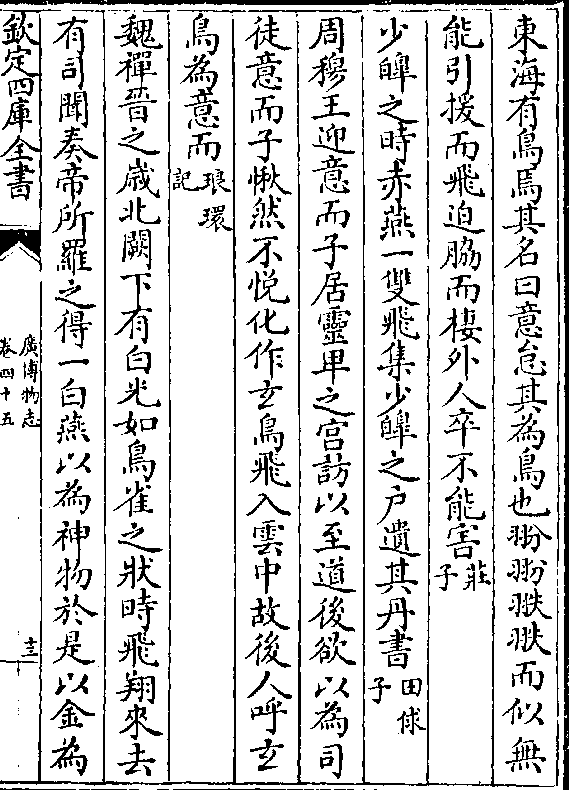 東海有鳥焉其名曰意怠其為鳥也翂翂翐翐而似無
能引援而飛迫脇而棲外人卒不能害莊子
少皥之時赤燕一雙飛集少皥之户遺其丹書田俅子
周穆王迎意而子居靈卑之宫訪以至道後欲以為司
徒意而子愀然不悦化作玄鳥飛入雲中故後人呼玄
鳥為意而琅環記
魏禪晉之歲北闕下有白光如鳥雀之狀時飛翔來去
有司聞奏帝所羅之得一白燕以為神物於是以金為
欽定四庫全書
廣博物志
卷四十五
十三